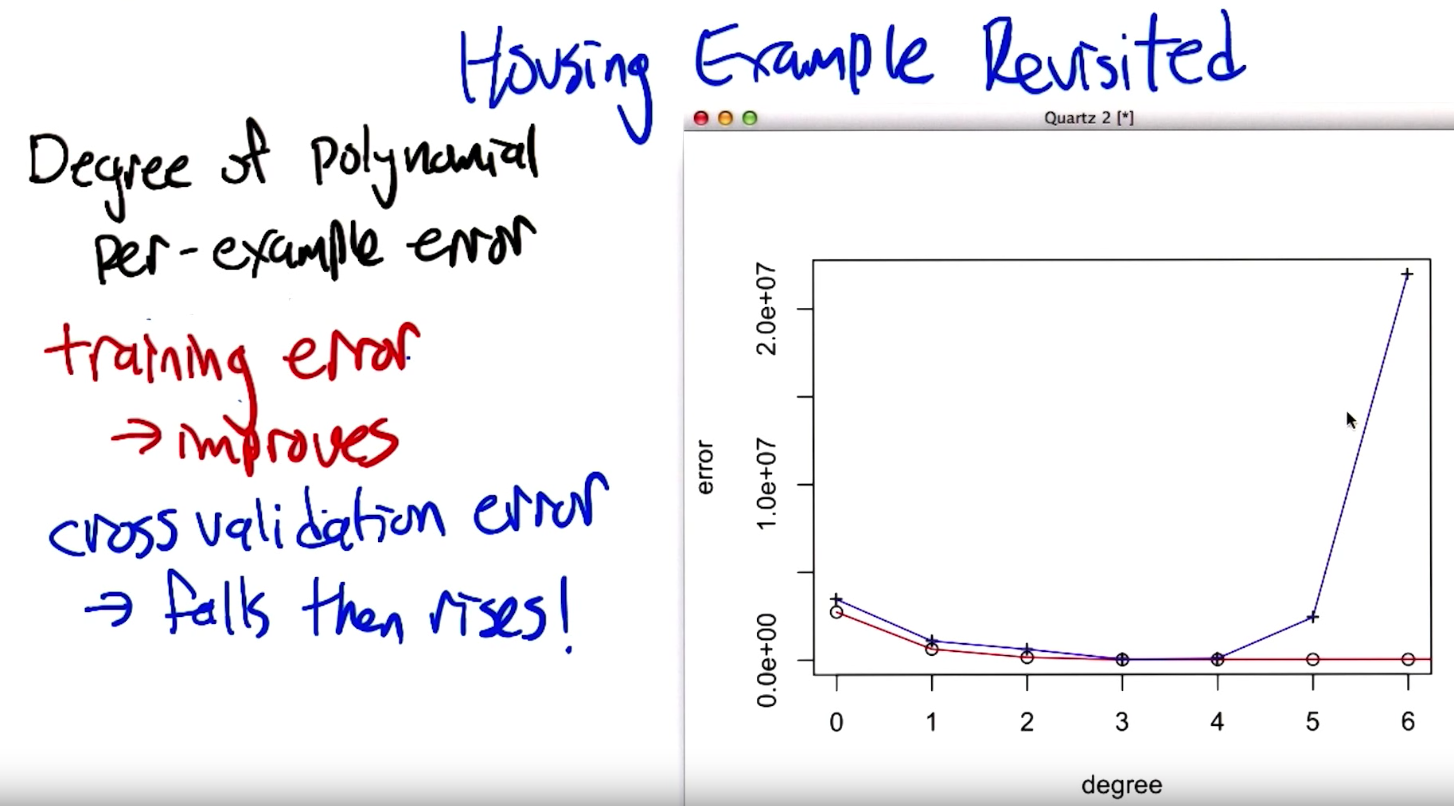 Housing Example Revisited
Degree of polynomial
per-example error
training error
→ improves
cross validation error
→ falls then rises!
Quartz 2 [*]
error
2.0e+07
1.0e+07
0.0e+00
0 1 2 3 4 5 6
degree